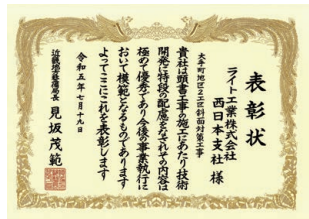 表彰状
ライト工業株式会社
西日本支社 様
大手町地区2工区斜面対策工事
貴社は頭書工事の施工にあたり技術
開発に特段の配慮をなされその内容は
極めて優秀であり今後の事業執行に
おいて模範となるものであります
よってここにこれを表彰します
令和五年七月十九日
近畿地方整備局長 見坂茂範